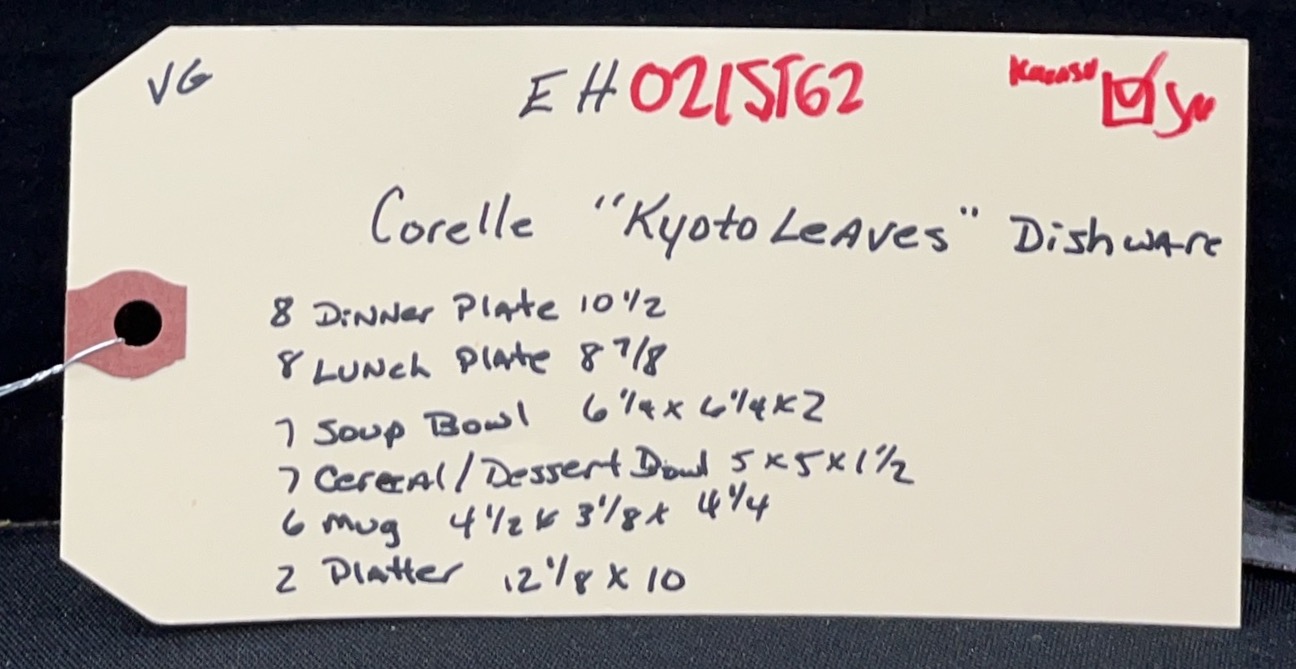 VG
EH0215T62
Corelle "Kyoto Leaves" Dishware
8 Dinner Plate 10 1/2
8 Lunch Plate 8 7/8
7 Soup Bowl 6 1/4 x 6 1/4 x 2
7 Cereal/Dessert Bowl 5 x 5 x 1 1/2
6 Mug 4 1/2 x 3 1/8 x 4 1/4
2 Platter 12 1/8 x 10